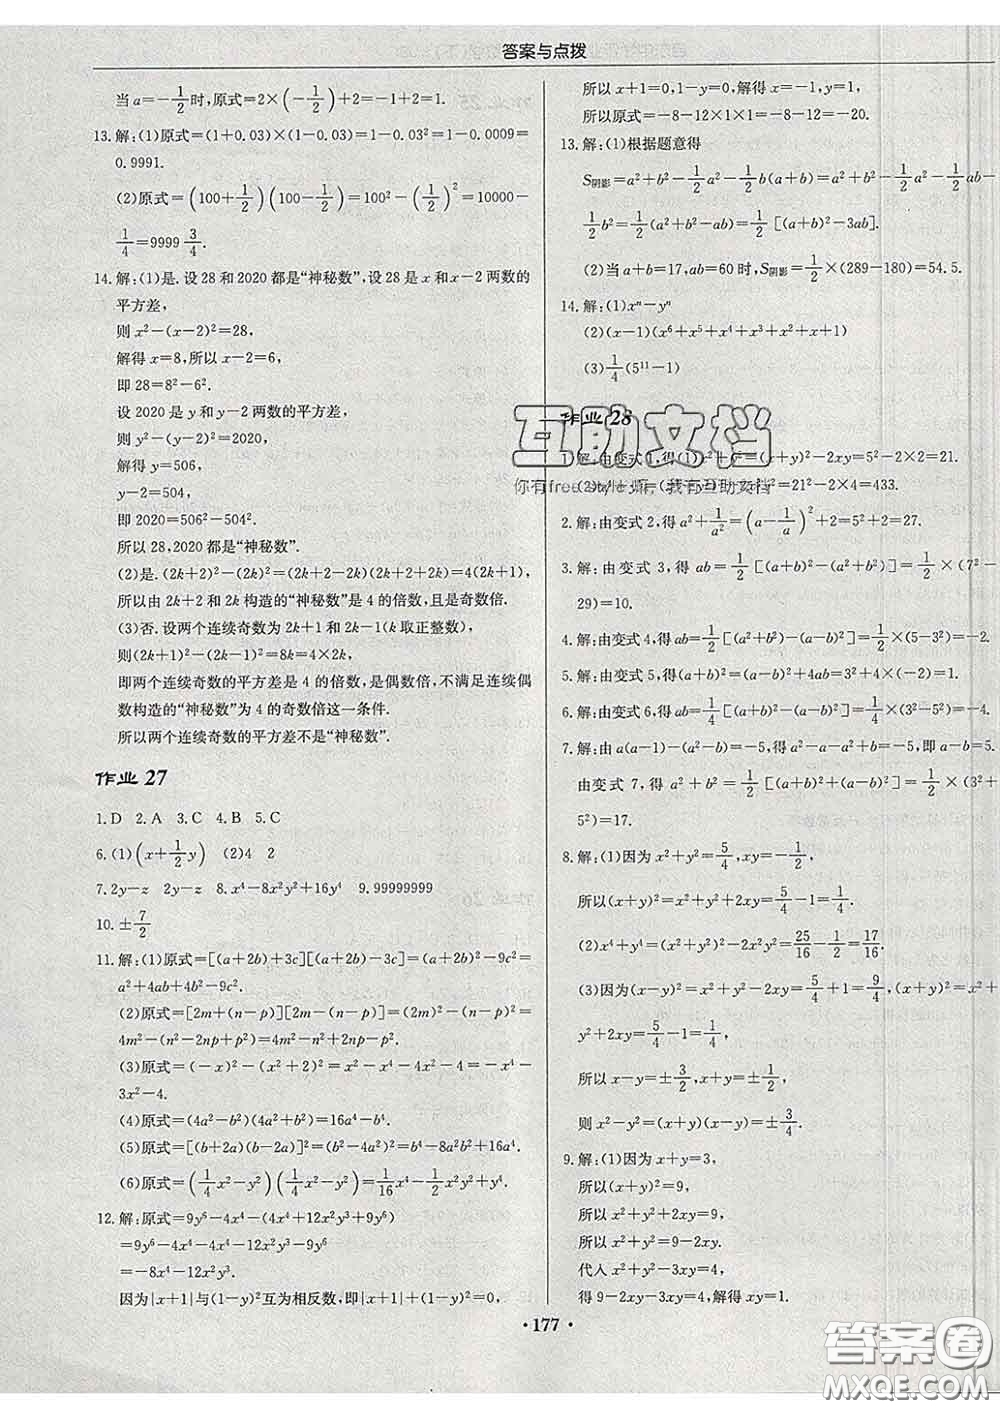 答案与点拨
当a=-1/2时,原式=2×(-1/2)+2=-1+2=1.
13.解:(1)原式=(1+0.03)×(1-0.03)=1-0.03²=1-0.0009=
0.9991.
(2)原式=(100+1/2)(100-1/2)=100²-(1/2)²=10000-
1/4=9999 3/4.
14.解:(1)是.设28和2020都是“神秘数”,设28是x和x-2两数的
平方差,
则x²-(x-2)²=28,
解得x=8,所以x-2=6,
即28=8²-6².
设2020是y和y-2两数的平方差,
则y²-(y-2)²=2020,
解得y=506,
y-2=504,
即2020=506²-504².
所以28,2020都是“神秘数”.
(2)是.(2k+2)²-(2k)²=(2k+2-2k)(2k+2+2k)=4(2k+1),
所以由2k+2和2k构造的“神秘数”是4的倍数,且是奇数倍.
(3)否.设两个连续奇数为2k+1和2k-1(k取正整数),
则(2k+1)²-(2k-1)²=8k=4×2k,
即两个连续奇数的平方差是4的倍数,是偶数倍,不满足连续偶
数构造的“神秘数”为4的奇数倍这一条件.
所以两个连续奇数的平方差不是“神秘数”.
作业27
1.D 2.A 3.C 4.B 5.C
6.(1)(x+1/2y) (2)4 2
7.2y-z 2y-z 8.x⁴-8x²y²+16y⁴ 9.99999999
10.±7/2
11.解:(1)原式=[(a+2b)+3c][(a+2b)-3c]=(a+2b)²-9c²=
a²+4ab+4b²-9c².
(2)原式=[2m+(n-p)][2m-(n-p)]=(2m)²-(n-p)²=
4m²-(n²-2np+p²)=4m²-n²+2np-p².
(3)原式=(-x)²-(x²+2)²=x²-x⁴-4x²-4=-x⁴-
3x²-4.
(4)原式=(4a²-b²)(4a²+b²)=16a⁴-b⁴.
(5)原式=[(b+2a)(b-2a)]²=(b²-4a²)²=b⁴-8a²b²+16a⁴.
(6)原式=(1/4x²-y²)(1/4x²-y²)=1/16x⁴-1/2x²y²+y⁴.
12.解:原式=9y⁶-4x⁴-(4x⁴+12x²y³+9y⁶)
=9y⁶-4x⁴-4x⁴-12x²y³-9y⁶
=-8x⁴-12x²y³.
因为|x+1|与(1-y)²互为相反数,即|x+1|+(1-y)²=0,
所以x+1=0,1-y=0. 解得x=-1,y=1.
所以原式=-8-12×1×1=-8-12=-20.
13.解:(1)根据题意得
S阴影=a²+b²-1/2a²-1/2b(a+b)=a²+b²-1/2a²-1/2ab-
1/2b²=1/2(a²+b²-ab)=1/2[(a+b)²-3ab].
(2)当a+b=17,ab=60时,S阴影=1/2×(289-180)=54.5.
14.解:(1)xⁿ-yⁿ
(2)(x-1)(x⁶+x⁵+x⁴+x³+x²+x+1)
(3)1/4(5¹¹-1)
作业28
互助文档
1.解:由变式1,得(1)x²+y²=(x+y)²-2xy=5²-2×2=21.
你有free style 烦,我有互助文档
=21²-2×2²=433.
2.解:由变式2,得a²+1/a²=(a-1/a)²+2=5²+2=27.
3.解:由变式3,得ab=1/2[(a+b)²-(a²+b²)]=1/2×(7²-
29)=10.
4.解:由变式4,得ab=1/2[(a²+b²)-(a-b)²]=1/2×(5-3²)=-2.
5.解:由变式5,得(a+b)²=(a-b)²+4ab=3²+4×(-2)=1.
6.解:由变式6,得ab=1/4[(a+b)²-(a-b)²]=1/4×(3²-5²)=-4.
7.解:由a(a-1)-(a²-b)=-5,得a²-a-a²+b=-5,即a-b=5.
由变式7,得a²+b²=1/2[(a+b)²+(a-b)²]=1/2×(3²+
5²)=17.
8.解:(1)因为x²+y²=5/4,xy=-1/2,
所以(x+y)²=x²+y²+2xy=5/4-1=1/4.
(2)x⁴+y⁴=(x²+y²)²-2x²y²=25/16-1/2=17/16.
(3)因为(x-y)²=x²+y²-2xy=5/4+1=9/4,(x+y)²=x²+
y²+2xy=5/4-1=1/4,
所以x-y=±3/2,x+y=±1/2,
则x²-y²=(x+y)(x-y)=±3/4.
9.解:(1)因为x+y=3,
所以(x+y)²=9,
所以x²+y²+2xy=9,
所以x²+y²=9-2xy.
代入x²+y²-3xy=4,
得9-2xy-3xy=4,解得xy=1.
·177·
答案圈
MXQE.COM